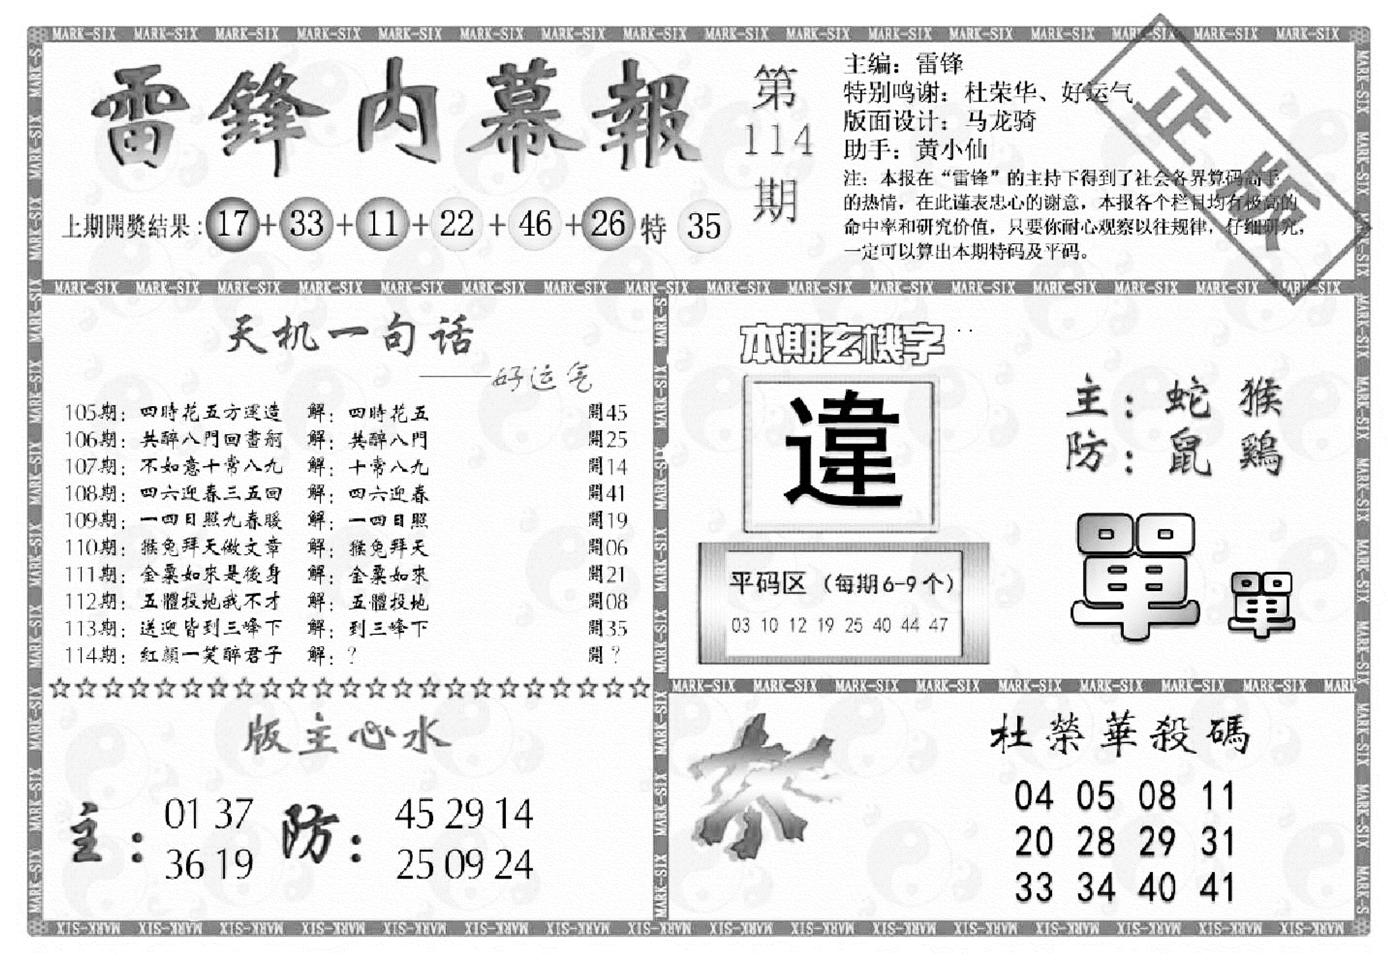 MARK-SIX MARK-SIX MARK-SIX MARK-SIX MARK-SIX MARK-SIX MARK-SIX MARK-SIX MARK-SIX MARK-SIX MARK-SIX MARK-SIX MARK-SIX MARK-SIX MARK-SIX MARK-SIX
雷鋒内幕報
第
114
期
主编：雷锋
特别鸣谢：杜荣华、好运气
版面设计：马龙骑
助手：黄小仙
注：本报在“雷锋”的主持下得到了社会各界算码高手
的热情，在此谨表忠心的谢意，本报各个栏目均有极高的
命中率和研究价值，只要你耐心观察以往规律，仔细研究，
一定可以算出本期特码及平码。
正版
上期開獎結果：17+33+11+22+46+26特 35
天机一句话
——好运气
105期：四時花五方運造 解：四時花五 開45
106期：共醉八門回畫舸 解：共醉八門 開25
107期：不如意十常八九 解：十常八九 開14
108期：四六迎春三五回 解：四六迎春 開41
109期：一四日照九春暖 解：一四日照 開19
110期：猴兔拜天做文章 解：猴兔拜天 開06
111期：金粟如來是後身 解：金粟如來 開21
112期：五體投地我不才 解：五體投地 開08
113期：送迎皆到三峰下 解：到三峰下 開35
114期：紅顏一笑醉君子 解：？ 開？
本期玄機字
違
主：蛇 猴
防：鼠 鷄
單 單
平码区（每期6-9个）
03 10 12 19 25 40 44 47
版主心水
主： 01 37
36 19
防： 45 29 14
25 09 24
杀
杜榮華殺碼
04 05 08 11
20 28 29 31
33 34 40 41